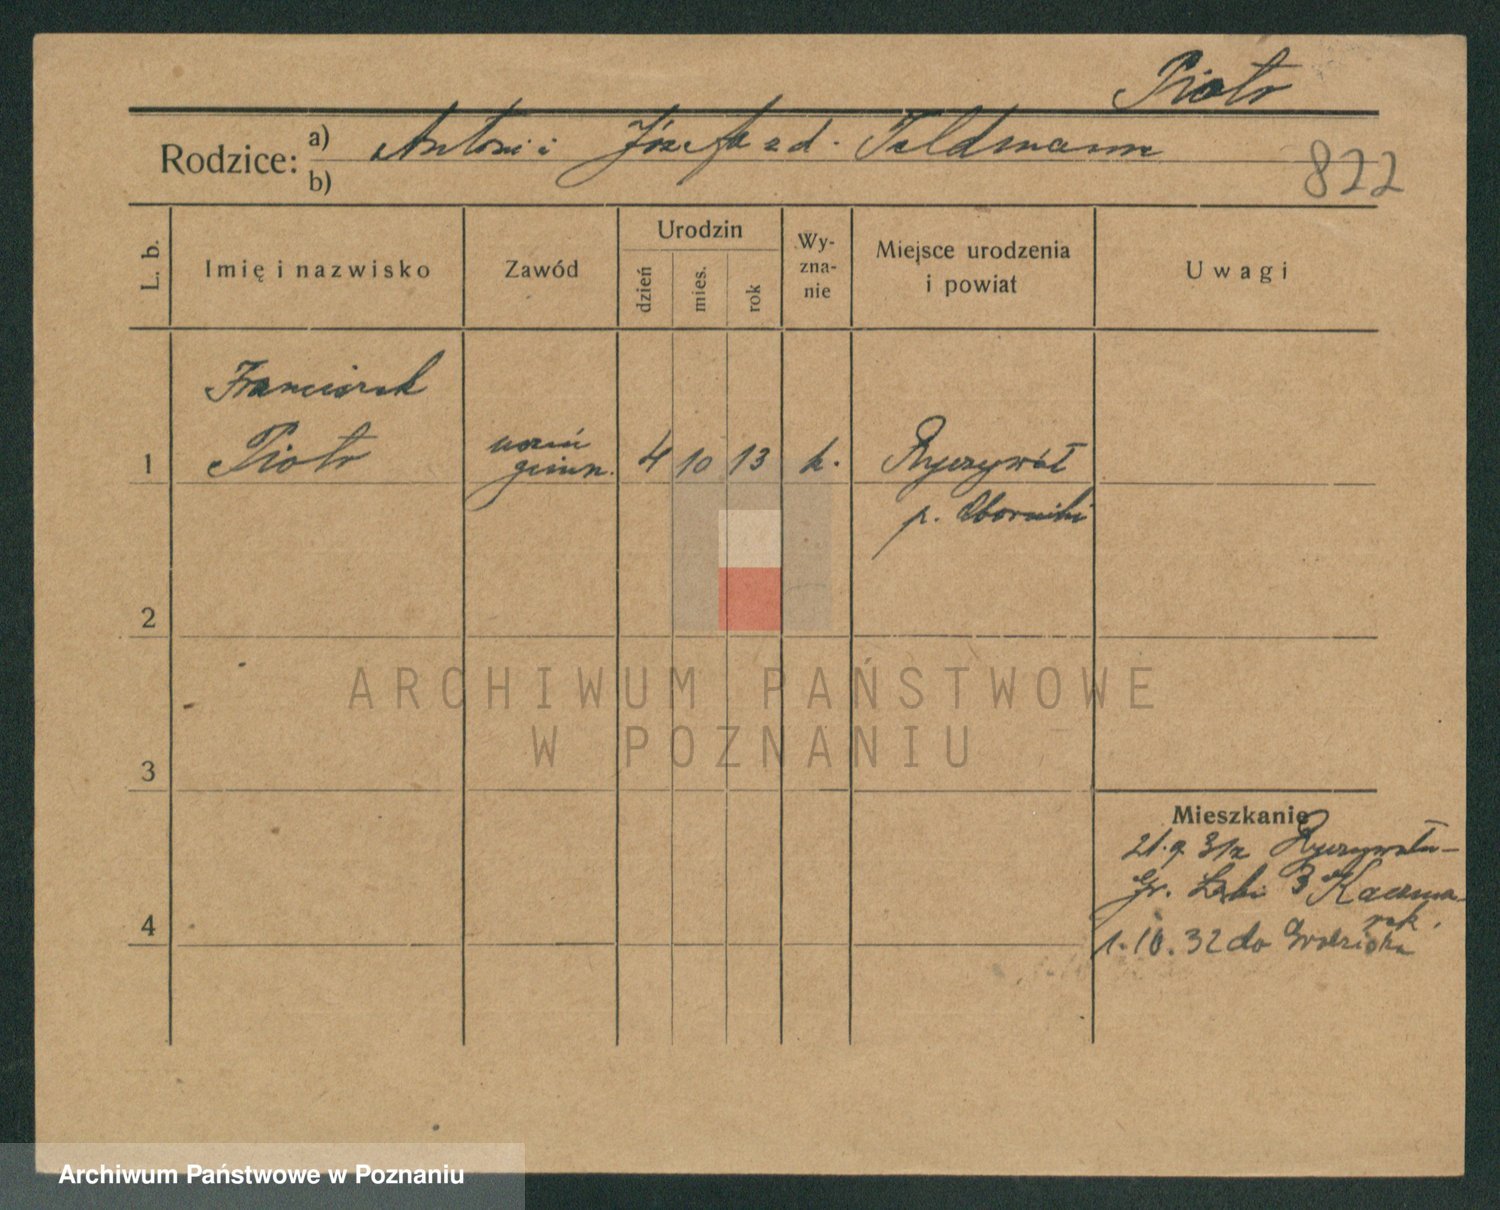 Piotr
Rodzice: a) Antoni i Józefa z d. Feldmann
b)
822
L. b.
Imię i nazwisko
Zawód
Urodzin
dzień
mies.
rok
Wy-
zna-
nie
Miejsce urodzenia
i powiat
Uwagi
Franciszek
1 Piotr uczeń gimn. 4 10 13 k. Ryczywół
p. Oborniki
2
3
4
ARCHIWUM PAŃSTWOWE
W POZNANIU
Mieszkanie
21.9.31 z Ryczywołu-
Gr. 3 Kaczma
rek.
1.10.32 do Grodziska
Archiwum Państwowe w Poznaniu